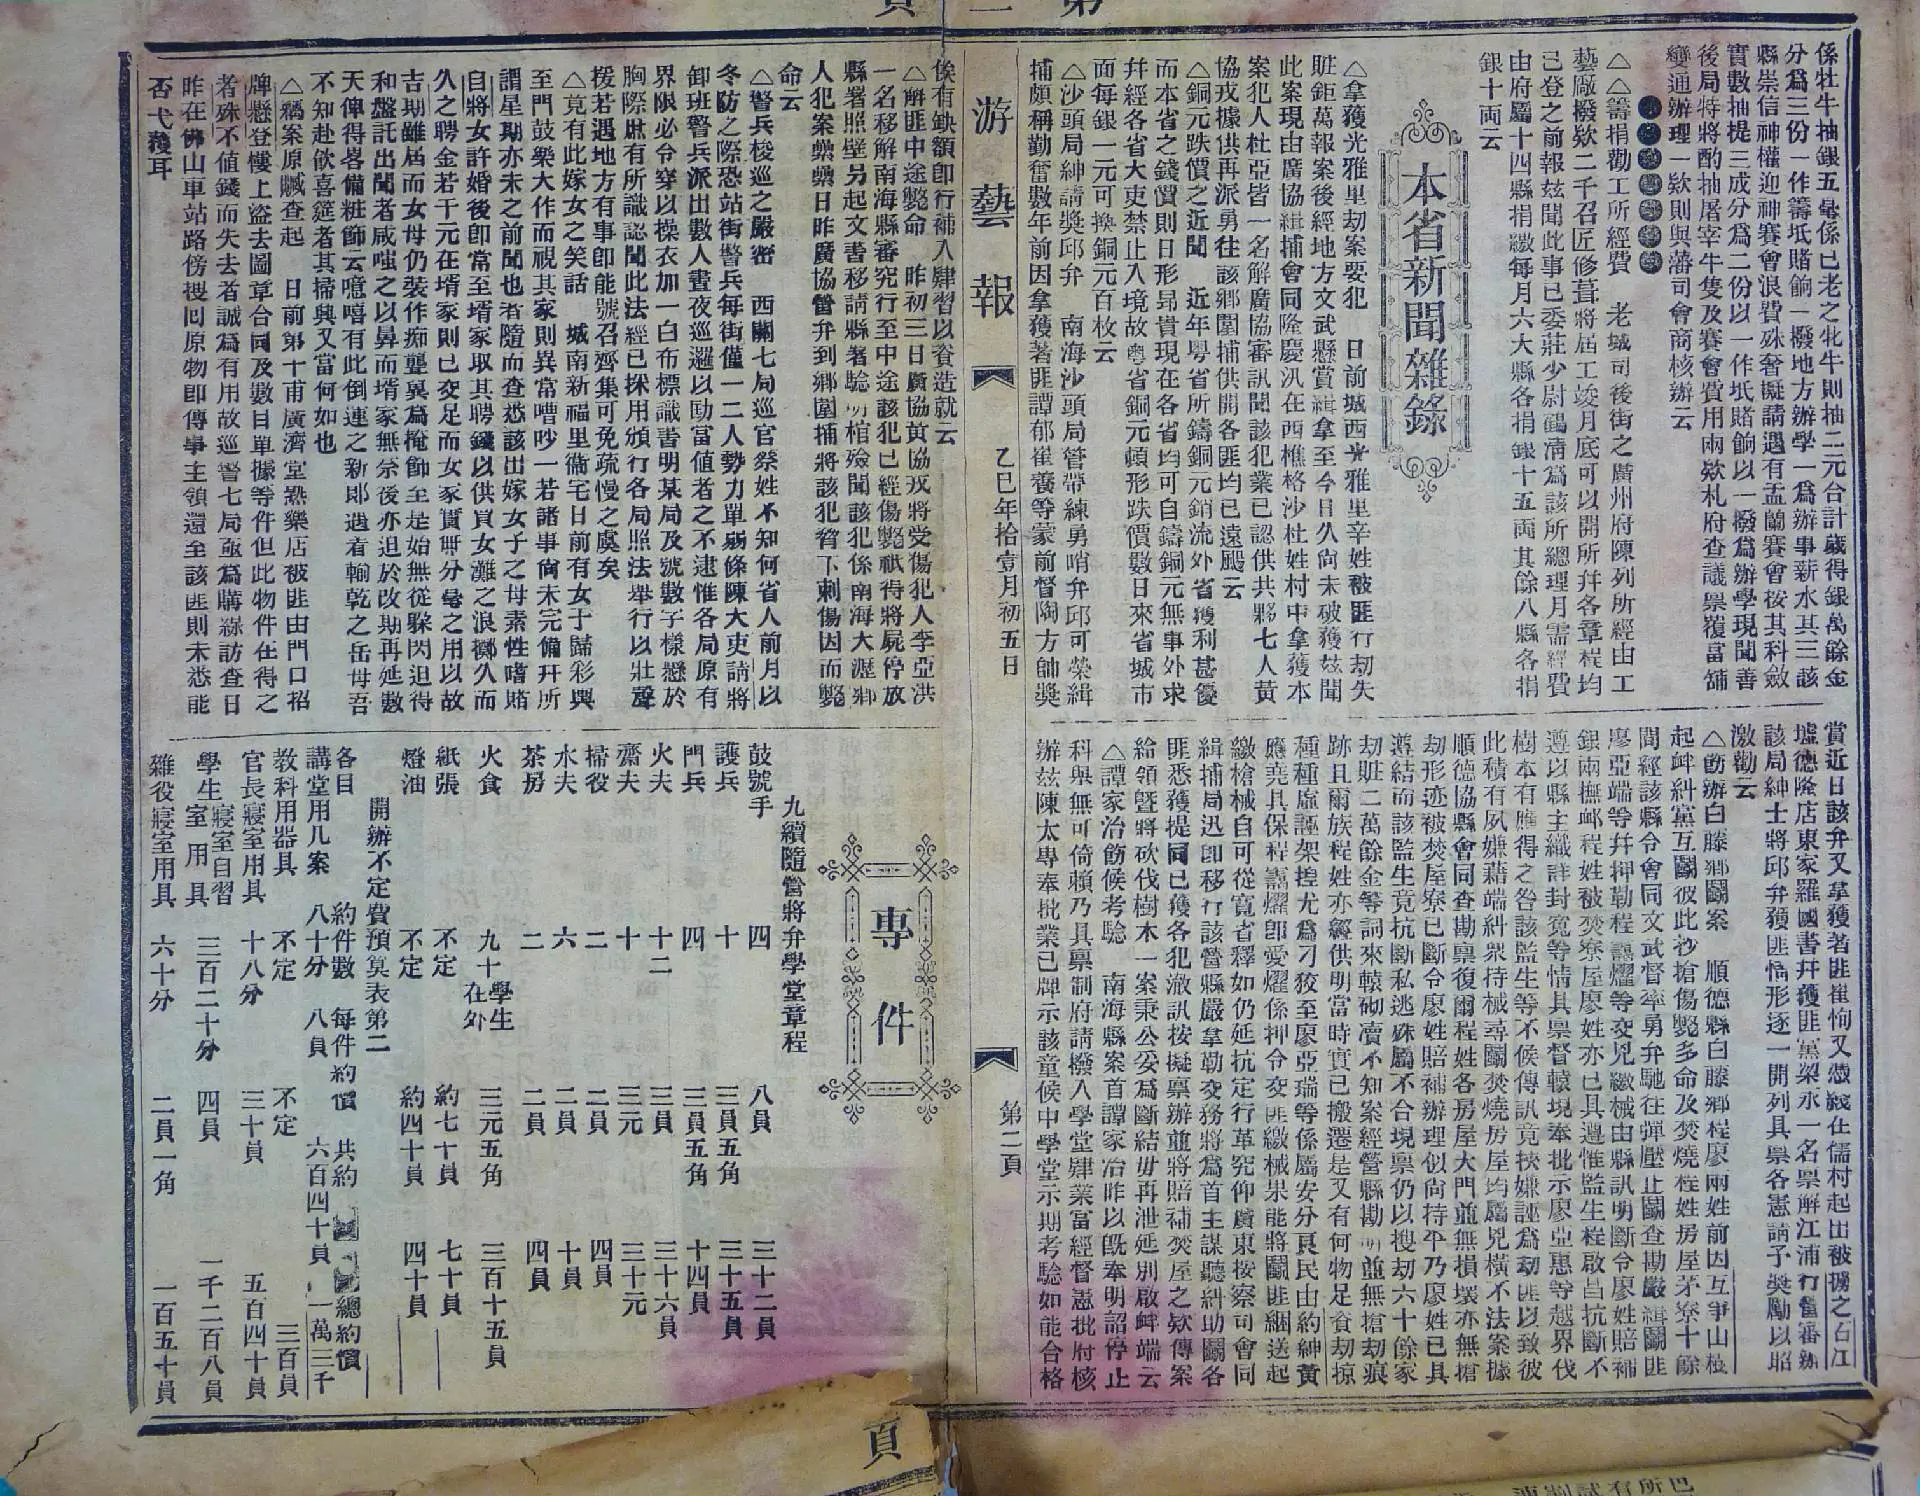 係牡牛抽銀五毫係已老之牝牛則抽二元合計歲得銀萬餘金
分爲三份一作籌坻賭餉一撥地方辦學一爲辦事薪水其三該
縣崇信神權迎神賽會浪費殊奢擬請遇有盂蘭賽會按其科斂
實數抽提三成分爲二份以一作坻賭餉以一撥爲辦學現聞善
後局特將酌抽屠宰牛隻及賽會費用兩欵札府查議禀覆當舖
變通辦理一欵則與藩司會商核辦云
△△籌捐勸工所經費 老城司後街之廣州府陳列所經由工
藝廠撥欵二千召匠修葺將屆工竣月底可以開所幷各章程均
已登之前報玆聞此事已委莊少尉鶴淸爲該所總理月需經費
由府屬十四縣捐繳每月六大縣各捐銀十五両其餘八縣各捐
銀十両云
本省新聞雜錄
△拿獲光雅里劫案要犯 日前城西光雅里辛姓被匪行劫失
賍鉅萬報案後經地方文武懸賞緝拿至今日久尙未破獲玆聞
此案現由廣協緝捕會同隆慶汛在西樵格沙杜姓村中拿獲本
案犯人杜亞皆一名解廣協審訊聞該犯業已認供共夥七人黃
協戎據供再派勇往該鄉圍捕供開各匪均已遠颺云
△銅元跌價之近聞 近年粤省所鑄銅元銷流外省獲利甚優
而本省之錢價則日形昂貴現在各省均可自鑄銅元無事外求
幷經各省大吏禁止入境故粤省銅元頓形跌價數日來省城市
面每銀一元可換銅元百枚云
△沙頭局紳請獎邱弁 南海沙頭局管帶練勇哨弁邱可榮緝
捕頗稱勤奮數年前因拿獲著匪譚郁崔養等蒙前督陶方帥獎
賞近日該弁又拿獲著匪崔恂又憑綫在儒村起出被擄之石江
墟德隆店東家羅國書幷獲匪黨梁永一名禀解江浦行營審辦
該局紳士將邱弁獲匪情形逐一開列具禀各憲請予奬勵以昭
激勸云
△飭辦白藤鄉鬭案 順德縣白藤鄉程廖兩姓前因互爭山枝
起衅糾黨互鬭彼此沙搶傷斃多命及焚燒程姓房屋茅寮十餘
間經該縣令會同文武督率勇弁馳往彈壓止鬭查勘嚴緝鬭匪
廖亞端等幷押勒程燾燿等交兇繳械由縣訊明斷令廖姓賠補
銀兩撫邺程姓被焚寮屋廖姓亦已具遵惟監生程啟昌抗斷不
遵以縣主織詳封寃等情具禀督轅現奉批示廖亞惠等越界伐
樹本有應得之咎該監生等不候傳訊竟挾嫌誣爲刼匪以致彼
此積有夙嫌藉端糾衆持械尋鬭焚燒房屋均屬兇橫不法案據
順德協縣會同查勘禀復爾程姓各房屋大門並無損壞亦無搶
刼形迹被焚屋寮已斷令廖姓賠補辦理似尙持平乃廖姓已具
遵結而該監生竟抗斷私逃殊屬不合現禀仍以搜刼六十餘家
刼賍二萬餘金等詞來轅砌凟不知案經營縣勘明並無搶刼痕
跡且爾族程姓亦繳供明當時實已搬遷是又有何物足資刼掠
種種虛誣架揑尤爲刁狡至廖亞瑞等係屬安分良民由約紳黃
應堯具保程燾燿卽愛燿係押令交匪繳械果能將鬭匪綑送起
繳槍械自可從寬省釋如仍延抗定行革究仰廣東按察司會同
緝捕局迅卽移行該營縣嚴拿勒交務將爲首主謀聽糾助鬭各
匪悉獲提同已獲各犯澈訊按擬禀辦並將賠補焚屋之欵傳案
給領曁將砍伐樹木一案秉公妥爲斷結毋再泄延別啟衅端云
△譚家治飭候考騐 南海縣案首譚家冶昨以旣奉明詔停止
科舉無可倚賴乃具禀制府請撥入學堂肄業當經督憲批府核
辦玆陳太尊奉批業已牌示該童候中學堂示期考騐如能合格
游藝報
乙巳年拾壹月初五日
第二頁
俟有缺額卽行補入肄習以資造就云
△解匪中途斃命 昨初三日廣協黃協戎將受傷犯人李亞洪
一名移解南海縣審究行至中途該犯已經傷斃祇得將屍停放
縣署照壁另起文書移請縣署騐明棺殮聞該犯係南海大瀝鄉
人犯案纍纍日昨廣協營弁到鄉圍捕將該犯脅下刺傷因而斃
命云
△警兵梭巡之嚴密 西關七局巡官祭姓不知何省人前月以
冬防之際恐站街警兵每街僅一二人勢力單弱條陳大吏請將
卸班警兵派出數人晝夜巡邏以助當值者之不逮惟各局原有
界限必令穿以操衣加一白布標識書明某局及號數字樣懸於
胸際庶有所識認聞此法經已採用頒行各局照法舉行以壯聲
援若遇地方有事卽能號召齊集可免疏慢之虞矣
△竟有此嫁女之笑話 城南新福里衞宅日前有女于歸彩輿
至門鼓樂大作而視其家則異常嘈吵一若諸事尙未完備幵所
謂星期亦未之前聞也者隨而查悉該出嫁女子之母素性嗜賭
自將女許婚後卽常至壻家取其聘錢以供買女灘之浪擲久而
久之聘金若干元在壻家則已交足而女家實冊分毫之用以故
吉期雖屆而女母仍裝作痴聾異爲掩飾至是始無從躱閃迫得
和盤託出聞者咸嗤之以鼻而壻家無奈後亦迫於改期再延數
天俾得畧備粧飾云噫嘻有此倒運之新郞遇着輸乾之岳母吾
不知赴飮喜筵者其掃興又當何如也
△竊案原贓查起 日前第十甫廣濟堂熟藥店被匪由門口招
牌懸登樓上盜去圖章合同及數目單據等件但此物件在得之
者殊不値錢而失去者誠爲有用故巡警七局亟爲購綫訪查日
昨在佛山車站路傍搜回原物卽傳事主領還至該匪則未悉能
否弋獲耳
專件
九續隨營將弁學堂章程
鼓號手 四 八員 三十二員
護兵 十 三員五角 三十五員
門兵 四 三員五角 十四員
火夫 十二 三員 三十六員
齋夫 十 三元 三十元
掃役 二 二員 四員
水夫 六 二員 十員
茶房 二 二員 四員
火食 九十 學生在外 三元五角 三百十五員
紙張 不定 約七十員 七十員
燈油 不定 約四十員 四十員
開辦不定費預算表第二
各目 約件數 每件約價 共約 總約價
講堂用几案 八十分 八員 六百四十員 一萬三千
教科用器具 不定 不定 三百員
官長寢室用具 十八分 三十員 五百四十員
學生寢室自習室用具 三百二十分 四員 一千二百八員
雜役寢室用具 六十分 二員一角 一百五十員
頁